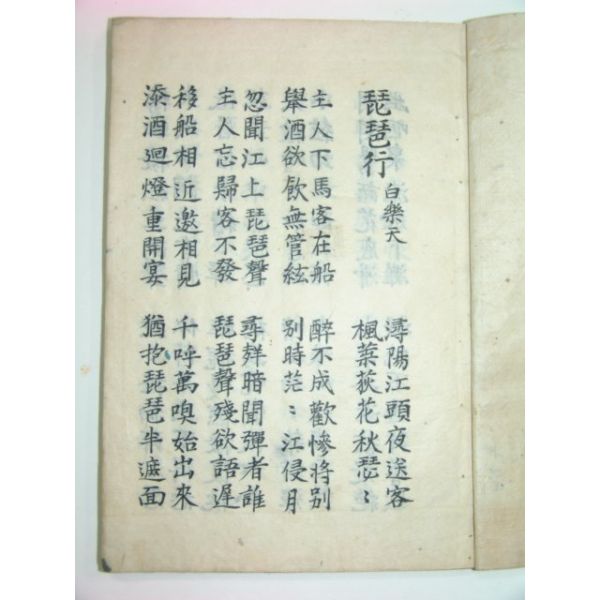 琵琶行 白樂天
潯陽江頭夜送客
楓葉荻花秋瑟〻
主人下馬客在船
舉酒欲飮無管絃
醉不成歡慘將别
别時茫〻江侵月
忽聞江上琵琶聲
主人忘歸客不發
尋暗聞彈者誰
琵琶聲殘欲語遲
移船相近邀相見
添酒迴燈重開宴
千呼萬嗅始出來
猶抱琵琶半遮面